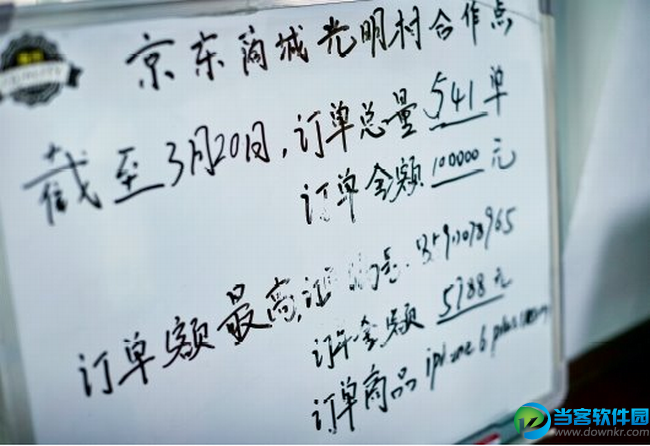 京东商城光明村合作点
截至3月20日,订单总量541单
订单金额100000元
订单额最高,订
订单金额5788元
订单商品 iphone 6 plus
当客软件园
www.downkr.com